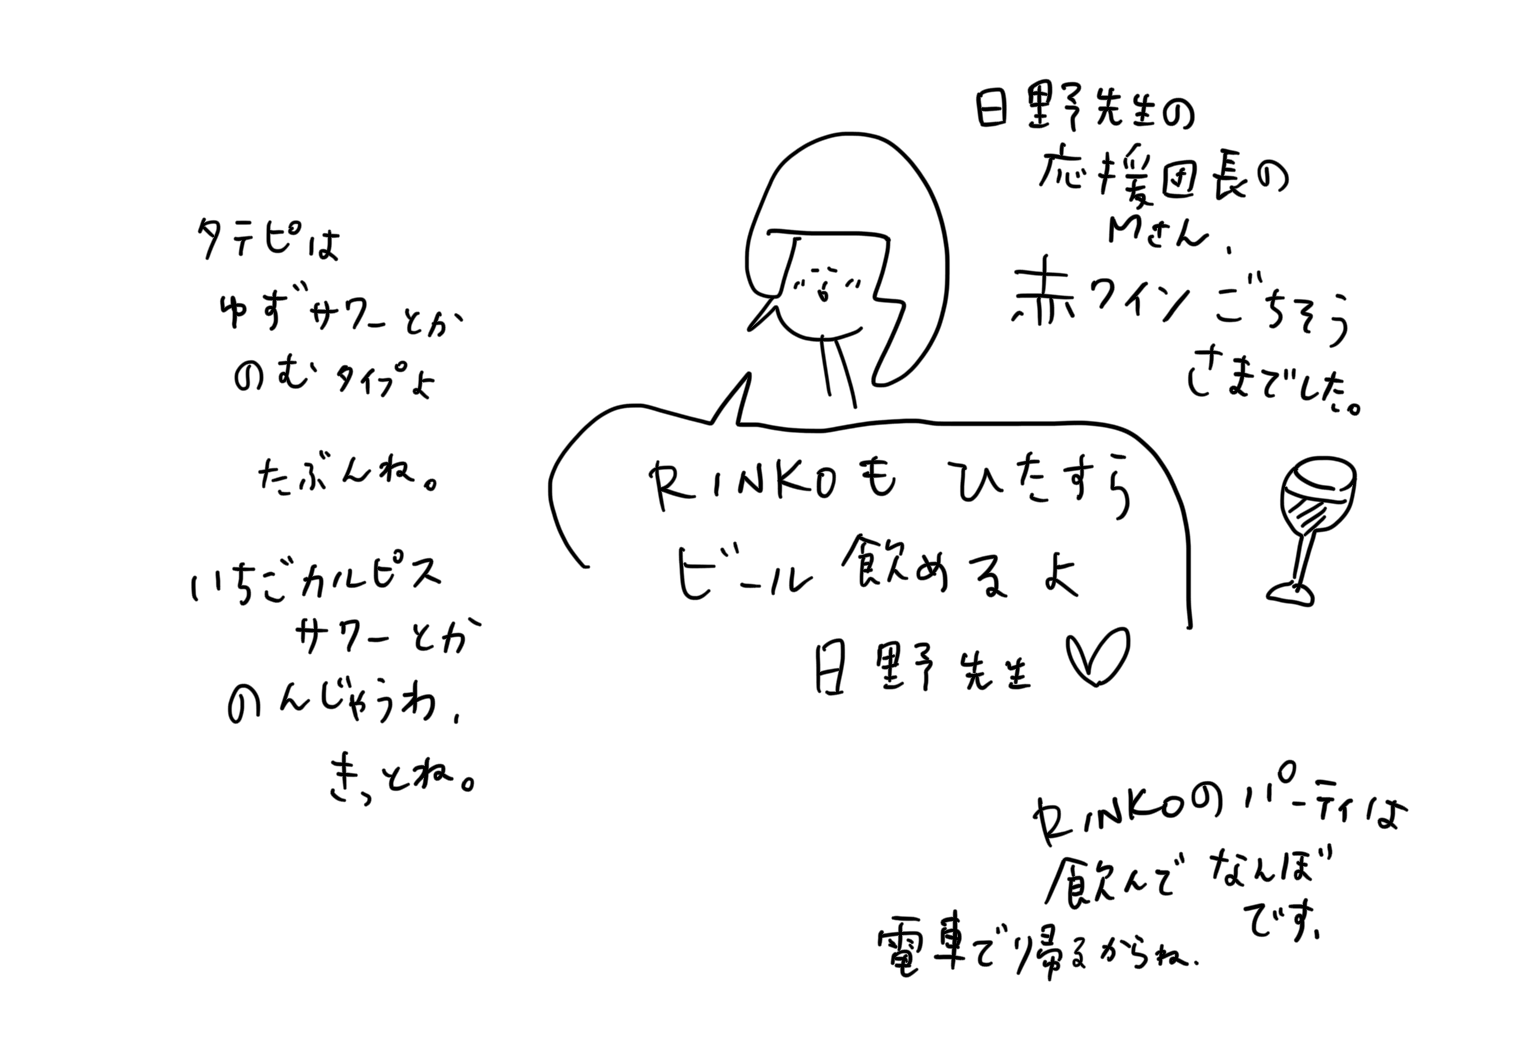 日野先生の
応援団長の
Mさん、
赤ワインごちそう
さまでした。
タテピは
ゆずサワーとか
のむタイプよ
たぶんね。
いちごカルピス
サワーとか
のんじゃうわ、
きっとね。
RINKOも ひたすら
ビール飲めるよ
日野先生♡
RINKOのパーティは
飲んでなんぼ
です、
電車で帰るからね、